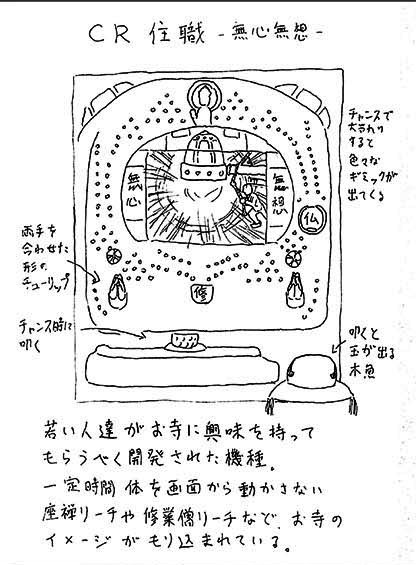 CR 住職 -無心無想-
チャンスで
大当りの
すると
色々な
ギミックが
出てくる
無心
無想
仏
両手を
合わせた
形の
チューリップ
修
チャンス時に
叩く
叩くと
玉が出る
木魚
若い人達がお寺に興味を持って
もらうべく開発された機種。
一定時間体を画面から動かさない
座禅リーチや修業僧リーチなど、お寺の
イメージがもり込まれている。